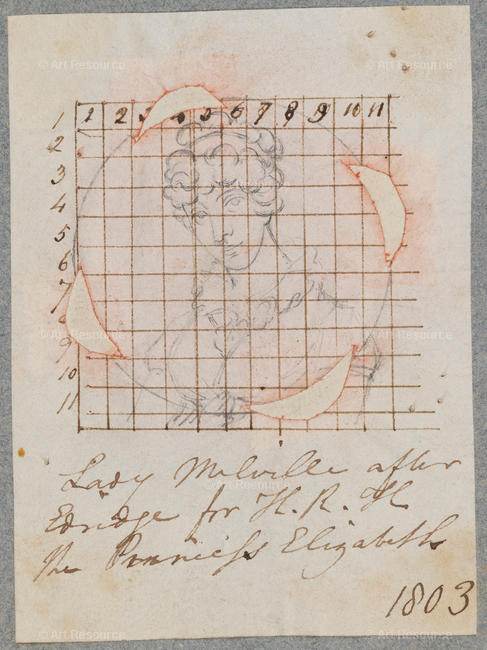 1 2 3 4 5 6 7 8 9 10 11
1
2
3
4
5
6
7
8
9
10
11
Lady Melville after
Edridge for H. R. H
the Princess Elizabeth
1803
© Art Resource
© Art Resource
© Art Resource
© Art Resource
© Art Resource
© Art Resource
© Art Resource
© Art Resource
© Art Resource
© Art Resource
© Art Resource
© Art Resource